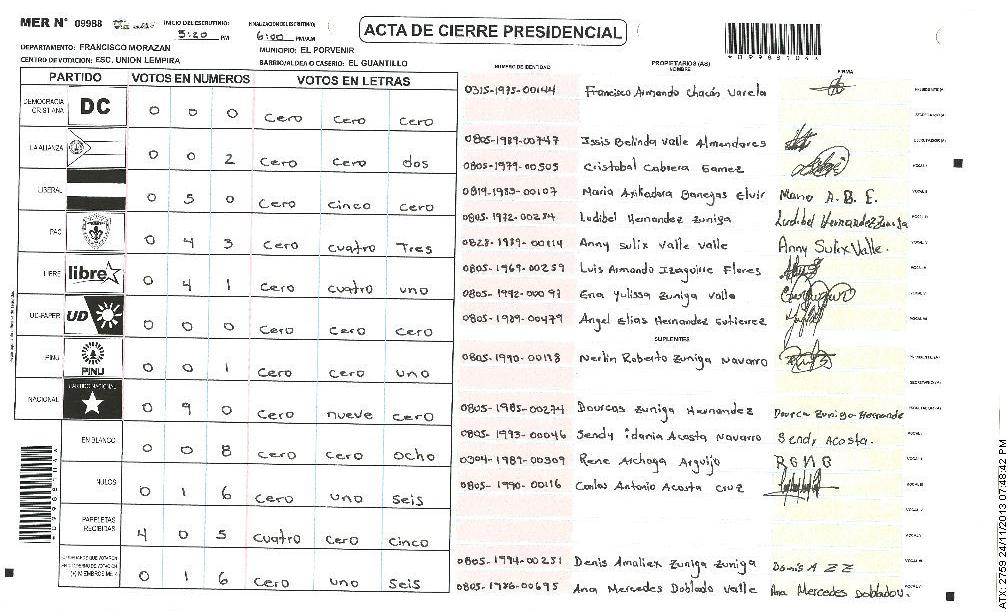 MER N° 09988
INICIO DEL ESCRUTINIO: 5:20 PM
FINALIZACION DEL ESCRUTINIO: 6:00 PM/AM
ACTA DE CIERRE PRESIDENCIAL
*09988104*
DEPARTAMENTO: FRANCISCO MORAZAN
MUNICIPIO: EL PORVENIR
CENTRO DE VOTACION: ESC. UNION LEMPIRA
BARRIO/ALDEA O CASERIO: EL GUANTILLO
PARTIDO VOTOS EN NUMEROS VOTOS EN LETRAS
DEMOCRACIA CRISTIANA DC 0 0 0 cero cero cero
LA ALIANZA 0 0 2 cero cero dos
LIBERAL 0 5 0 cero cinco cero
PAC 0 4 3 cero cuatro Tres
LIBRE libre 0 4 1 cero cuatro uno
UD-FAPER UD 0 0 0 cero cero cero
PINU PINU 0 0 1 cero cero uno
NACIONAL PARTIDO NACIONAL 0 9 0 cero nueve cero
EN BLANCO 0 0 8 cero cero ocho
NULOS 0 1 6 cero uno seis
PAPELETAS RECIBIDAS 4 0 5 cuatro cero cinco
0 1 6 cero uno seis
NUMERO DE IDENTIDAD
PROPIETARIOS (AS)
NOMBRE
FIRMA
0315-1975-00144 Francisco Armando Chacón Varela
0805-1989-00747 Issis Belinda Valle Almendares
0805-1979-00505 Cristobal Cabrera Gamez
0819-1983-00107 Maria Banegas Elvir Maria A. B. E.
0805-1972-00284 Ludibel Hernandez Zuniga Ludibel Hernandez Zuniga
0828-1989-00114 Anny sulix valle valle Anny Sulix Valle.
0805-1969-00259 Luis Armando Izaguirre Flores
0805-1992-00097 Ena Yulissa Zuniga Valle
0805-1989-00479 Angel Elias Hernandez Gutierrez
SUPLENTES
0805-1990-00138 Nerlin Roberto Zuniga Navarro
0805-1985-00274 Dourcas Zuniga Hernandez Dourca Zuniga Hernande
0805-1993-00046 Sendy idania Acosta Navarro Sendy Acosta.
0304-1989-00309 Rene Archaga Arguijo
0805-1990-00116 Carlos Antonio Acosta cruz
0805-1994-00251 Denis Zuniga Zuniga Denis A Z Z
0805-1986-00695 Ana Mercedes Doblado Valle Ana Mercedes Doblado V.
*09988104*
ATX: 2759 24/11/2013 07:48:42 PM